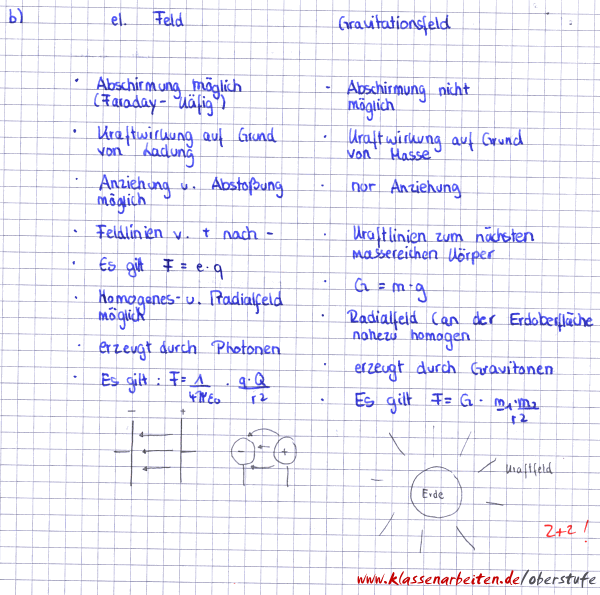 b)
el. Feld
Gravitationsfeld
· Abschirmung möglich
(Faraday-Käfig)
· Kraftwirkung auf Grund
von Ladung
· Anziehung u. Abstoßung
möglich
· Feldlinien v. + nach -
· Es gilt F = e·q
· Homogenes- u. Radialfeld
möglich
· erzeugt durch Photonen
· Es gilt: F = 1/4πε0 · q·Q/r2
- Abschirmung nicht
möglich
· Kraftwirkung auf Grund
von Masse
· nor Anziehung
· Kraftlinien zum nächsten
massereichen Körper
· G = m·g
· Radialfeld (an der Erdoberfläche
nahezu homogen
· erzeugt durch Gravitonen
· Es gilt F = G · m1·m2/r2
- +
- +
Erde
Kraftfeld
2+2!
www.klassenarbeiten.de/oberstufe